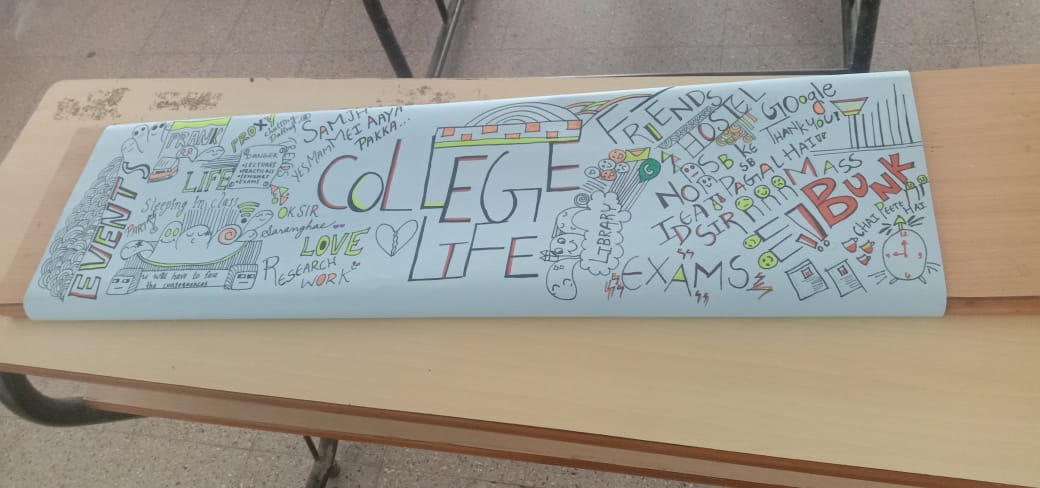 EVENTS
PRANK
LIFE
Sleeping in class
PROXY
DANGER
LECTURES
PRACTICALS
EXAMS
we will have to face
the consequences
SAMJH
MEI AAYA
PAKKA...
YES MAM!
OK SIR
Saranghae
LOVE
RESEARCH
WORK
COLLEGE
LIFE
LIBRARY
EXAMS
FRIENDS
HOSTEL
NO
IDEA
SIR
SAB
PAGAL HAI
Google
THANK YOU!
MASS
BUNK
!!
CHAI PEETE
HAI